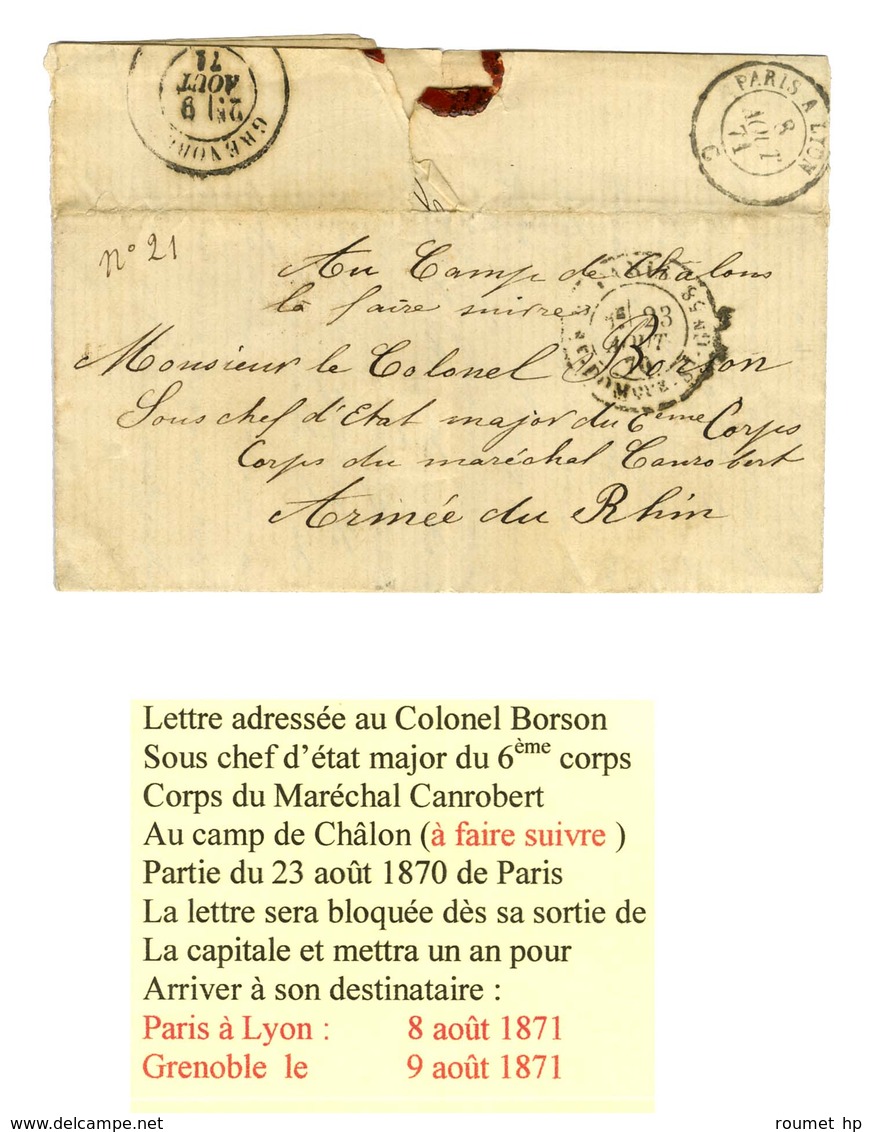 GRENOBLE
2E/ 9
AOUT
71
PARIS A LYON
8
AOUT
71
C
n° 21
Au Camp de Châlons
à faire suivre
23
AOUT
70
Monsieur le Colonel Borson
Sous chef d'Etat major du 6ème Corps
Corps du maréchal Canrobert
Armée du Rhin
Lettre adressée au Colonel Borson
Sous chef d'état major du 6ème corps
Corps du Maréchal Canrobert
Au camp de Châlon (à faire suivre )
Partie du 23 août 1870 de Paris
La lettre sera bloquée dès sa sortie de
La capitale et mettra un an pour
Arriver à son destinataire :
Paris à Lyon : 8 août 1871
Grenoble le 9 août 1871
www.delcampe.net
roumet hp